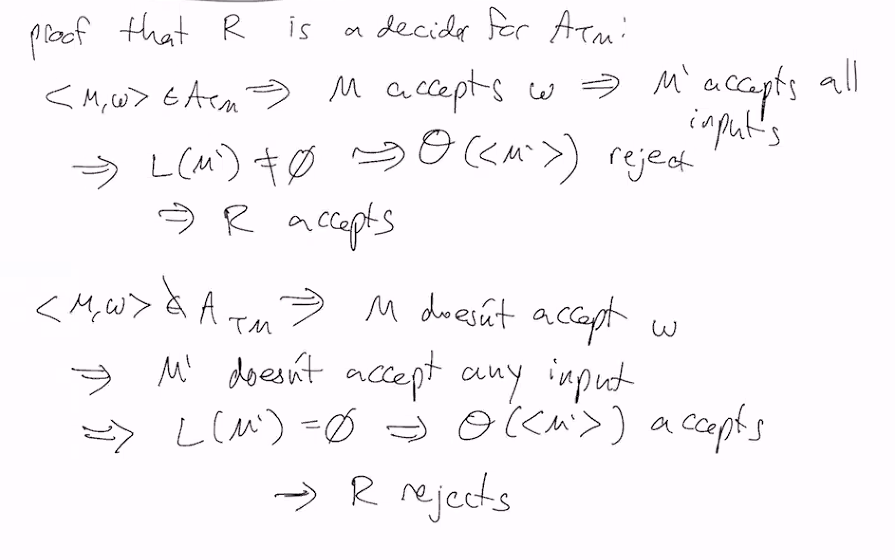 proof that R is a decider for A_TM:
<M,w> ∈ A_TM ⇒ M accepts w ⇒ M' accepts all
inputs
⇒ L(M') ≠ ∅ ⇒ Θ(<M'>) reject
⇒ R accepts
<M,w> ∉ A_TM ⇒ M doesn't accept w
⇒ M' doesn't accept any input
⇒ L(M') = ∅ ⇒ Θ(<M'>) accepts
→ R rejects